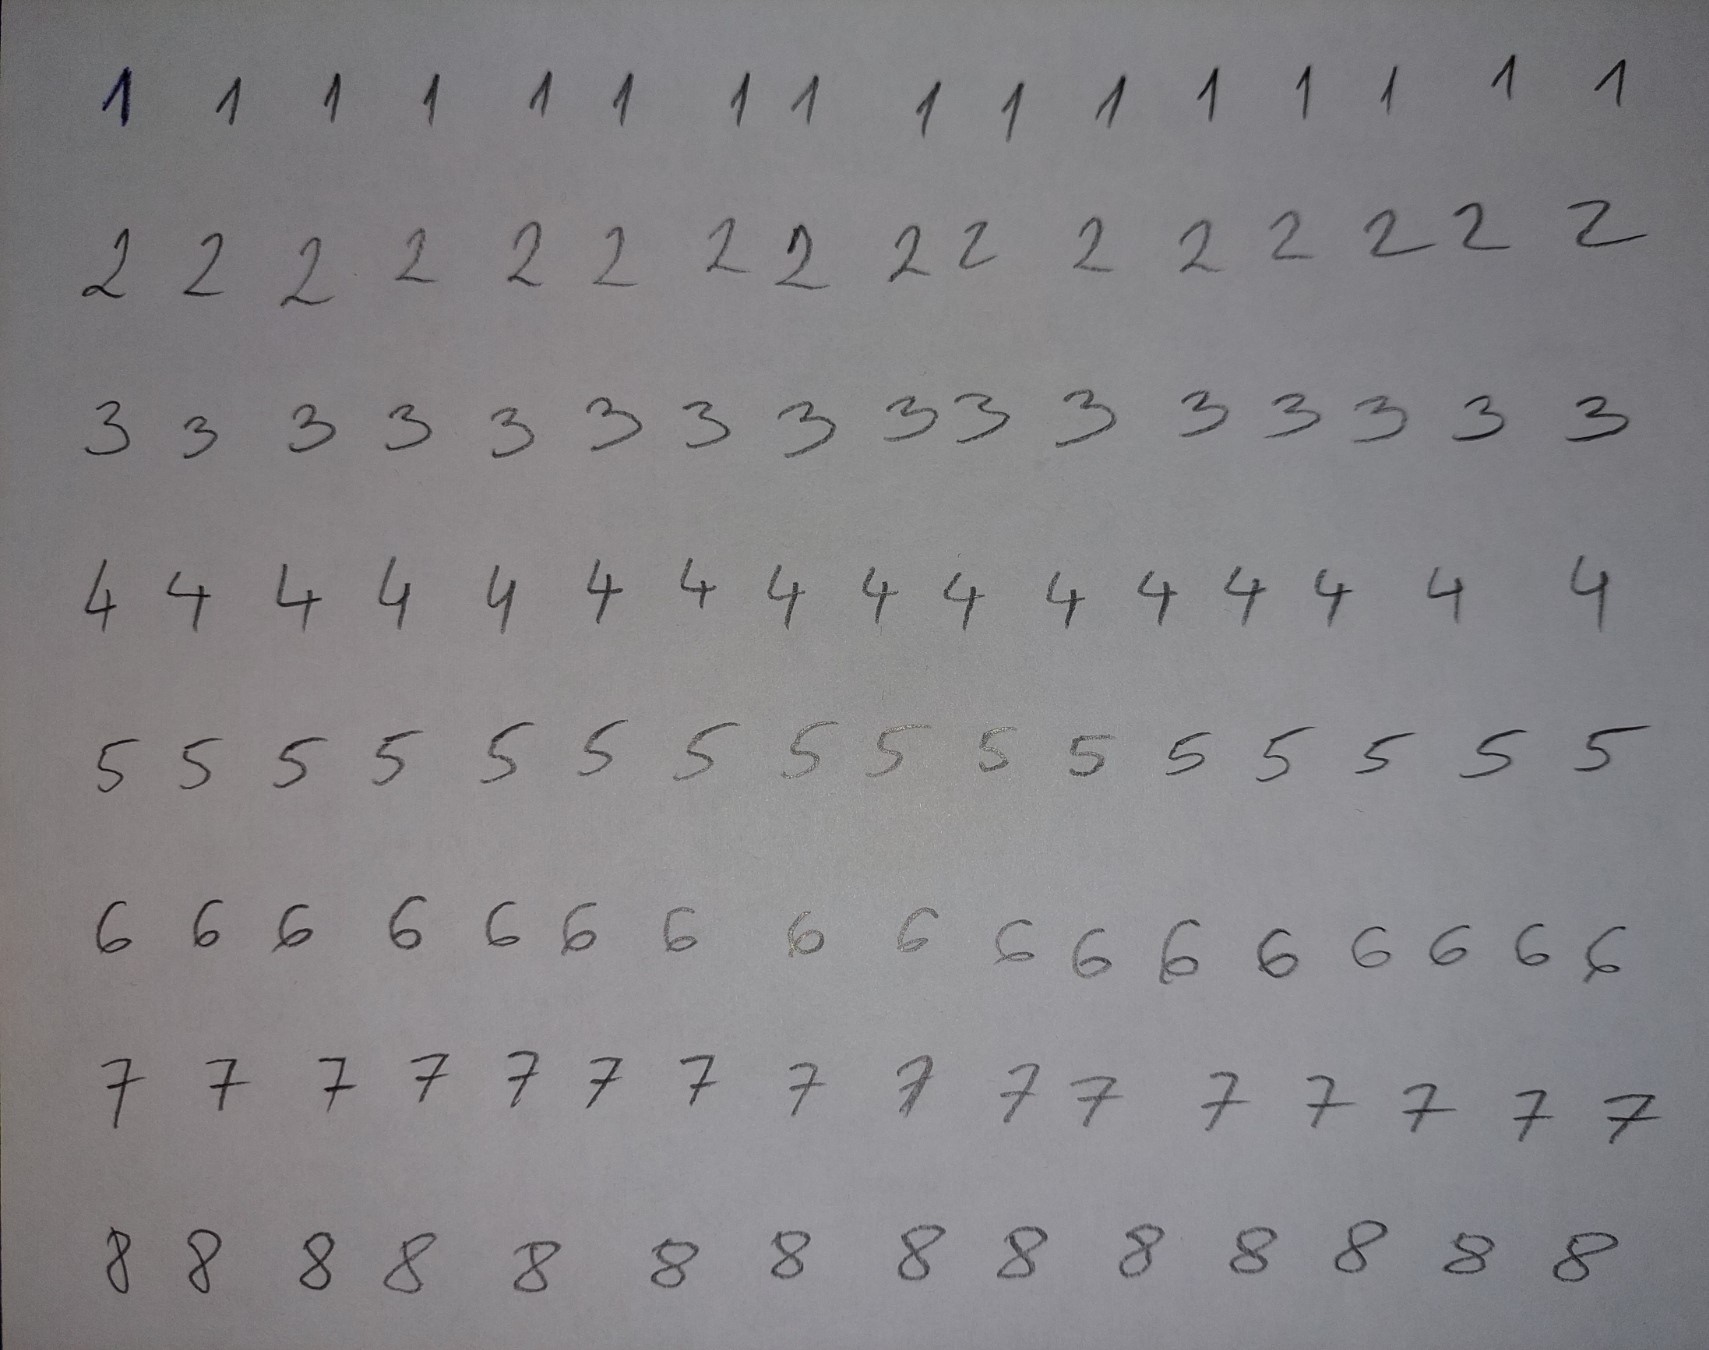 1 1 1 1 1 1 1 1 1 1 1 1 1 1 1 1
2 2 2 2 2 2 2 2 2 2 2 2 2 2 2 2
3 3 3 3 3 3 3 3 3 3 3 3 3 3 3 3
4 4 4 4 4 4 4 4 4 4 4 4 4 4 4 4
5 5 5 5 5 5 5 5 5 5 5 5 5 5 5 5
6 6 6 6 6 6 6 6 6 6 6 6 6 6 6 6 6
7 7 7 7 7 7 7 7 7 7 7 7 7 7 7 7
8 8 8 8 8 8 8 8 8 8 8 8 8 8